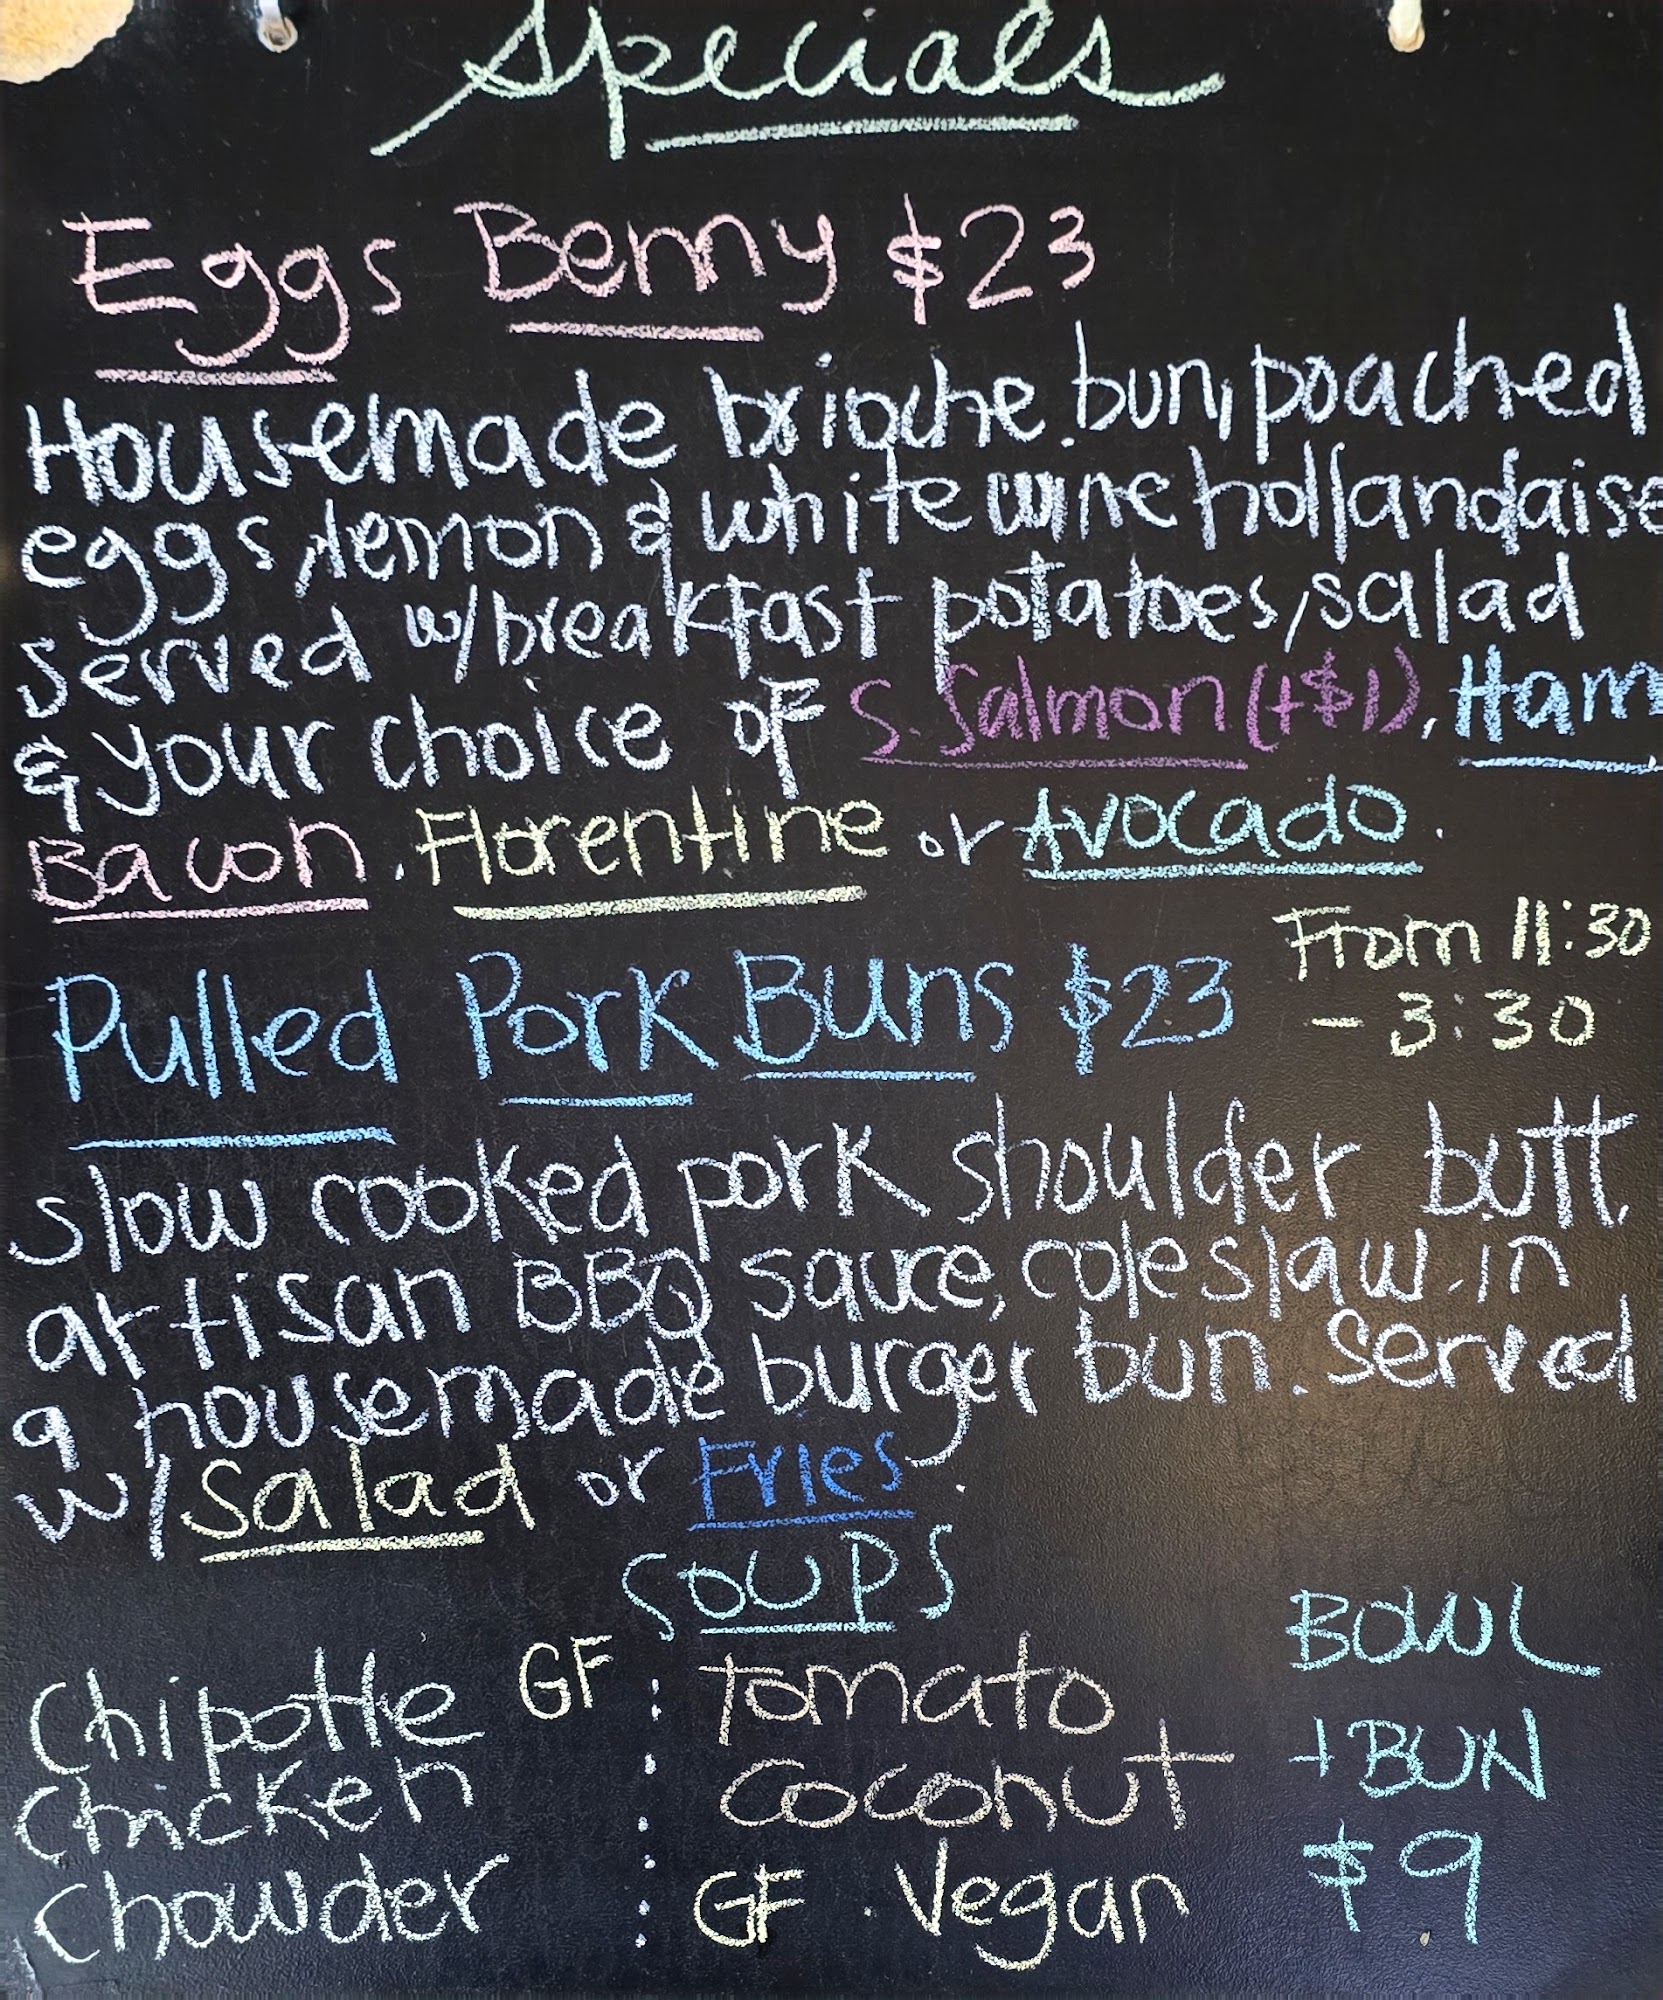 Specials
Eggs Benny $23
Housemade brioche bun, poached
eggs, lemon & white wine hollandaise
served w/breakfast potatoes, salad
& your choice of S. Salmon (+$1), Ham,
Bacon, Florentine or Avocado.
From 11:30
- 3:30
Pulled Pork Buns $23
slow cooked pork shoulder butt,
artisan BBQ sauce, coleslaw, in
a housemade burger bun. Served
w/ Salad or Fries.
SOUPS
Chipotle GF
Chicken
Chowder
Tomato
Coconut
GF . Vegan
BOWL
+ BUN
$9